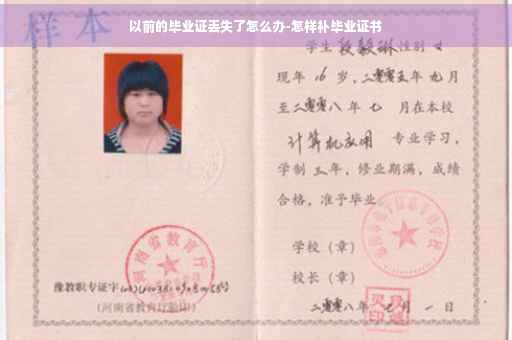 以前的毕业证丢失了怎么办-怎样补毕业证书
样本
学生 段毅琳 性别 女
现年 16 岁，二零零五年 九 月
至二零零八年 七 月在本校
计算机应用 专业学习，
学制 三 年，修业期满，成绩
合格，准予毕业
学校（章）
校长（章）
二零零八年 月 一 日
河南省教育厅
豫教职专证字
（河南省教育厅验印）